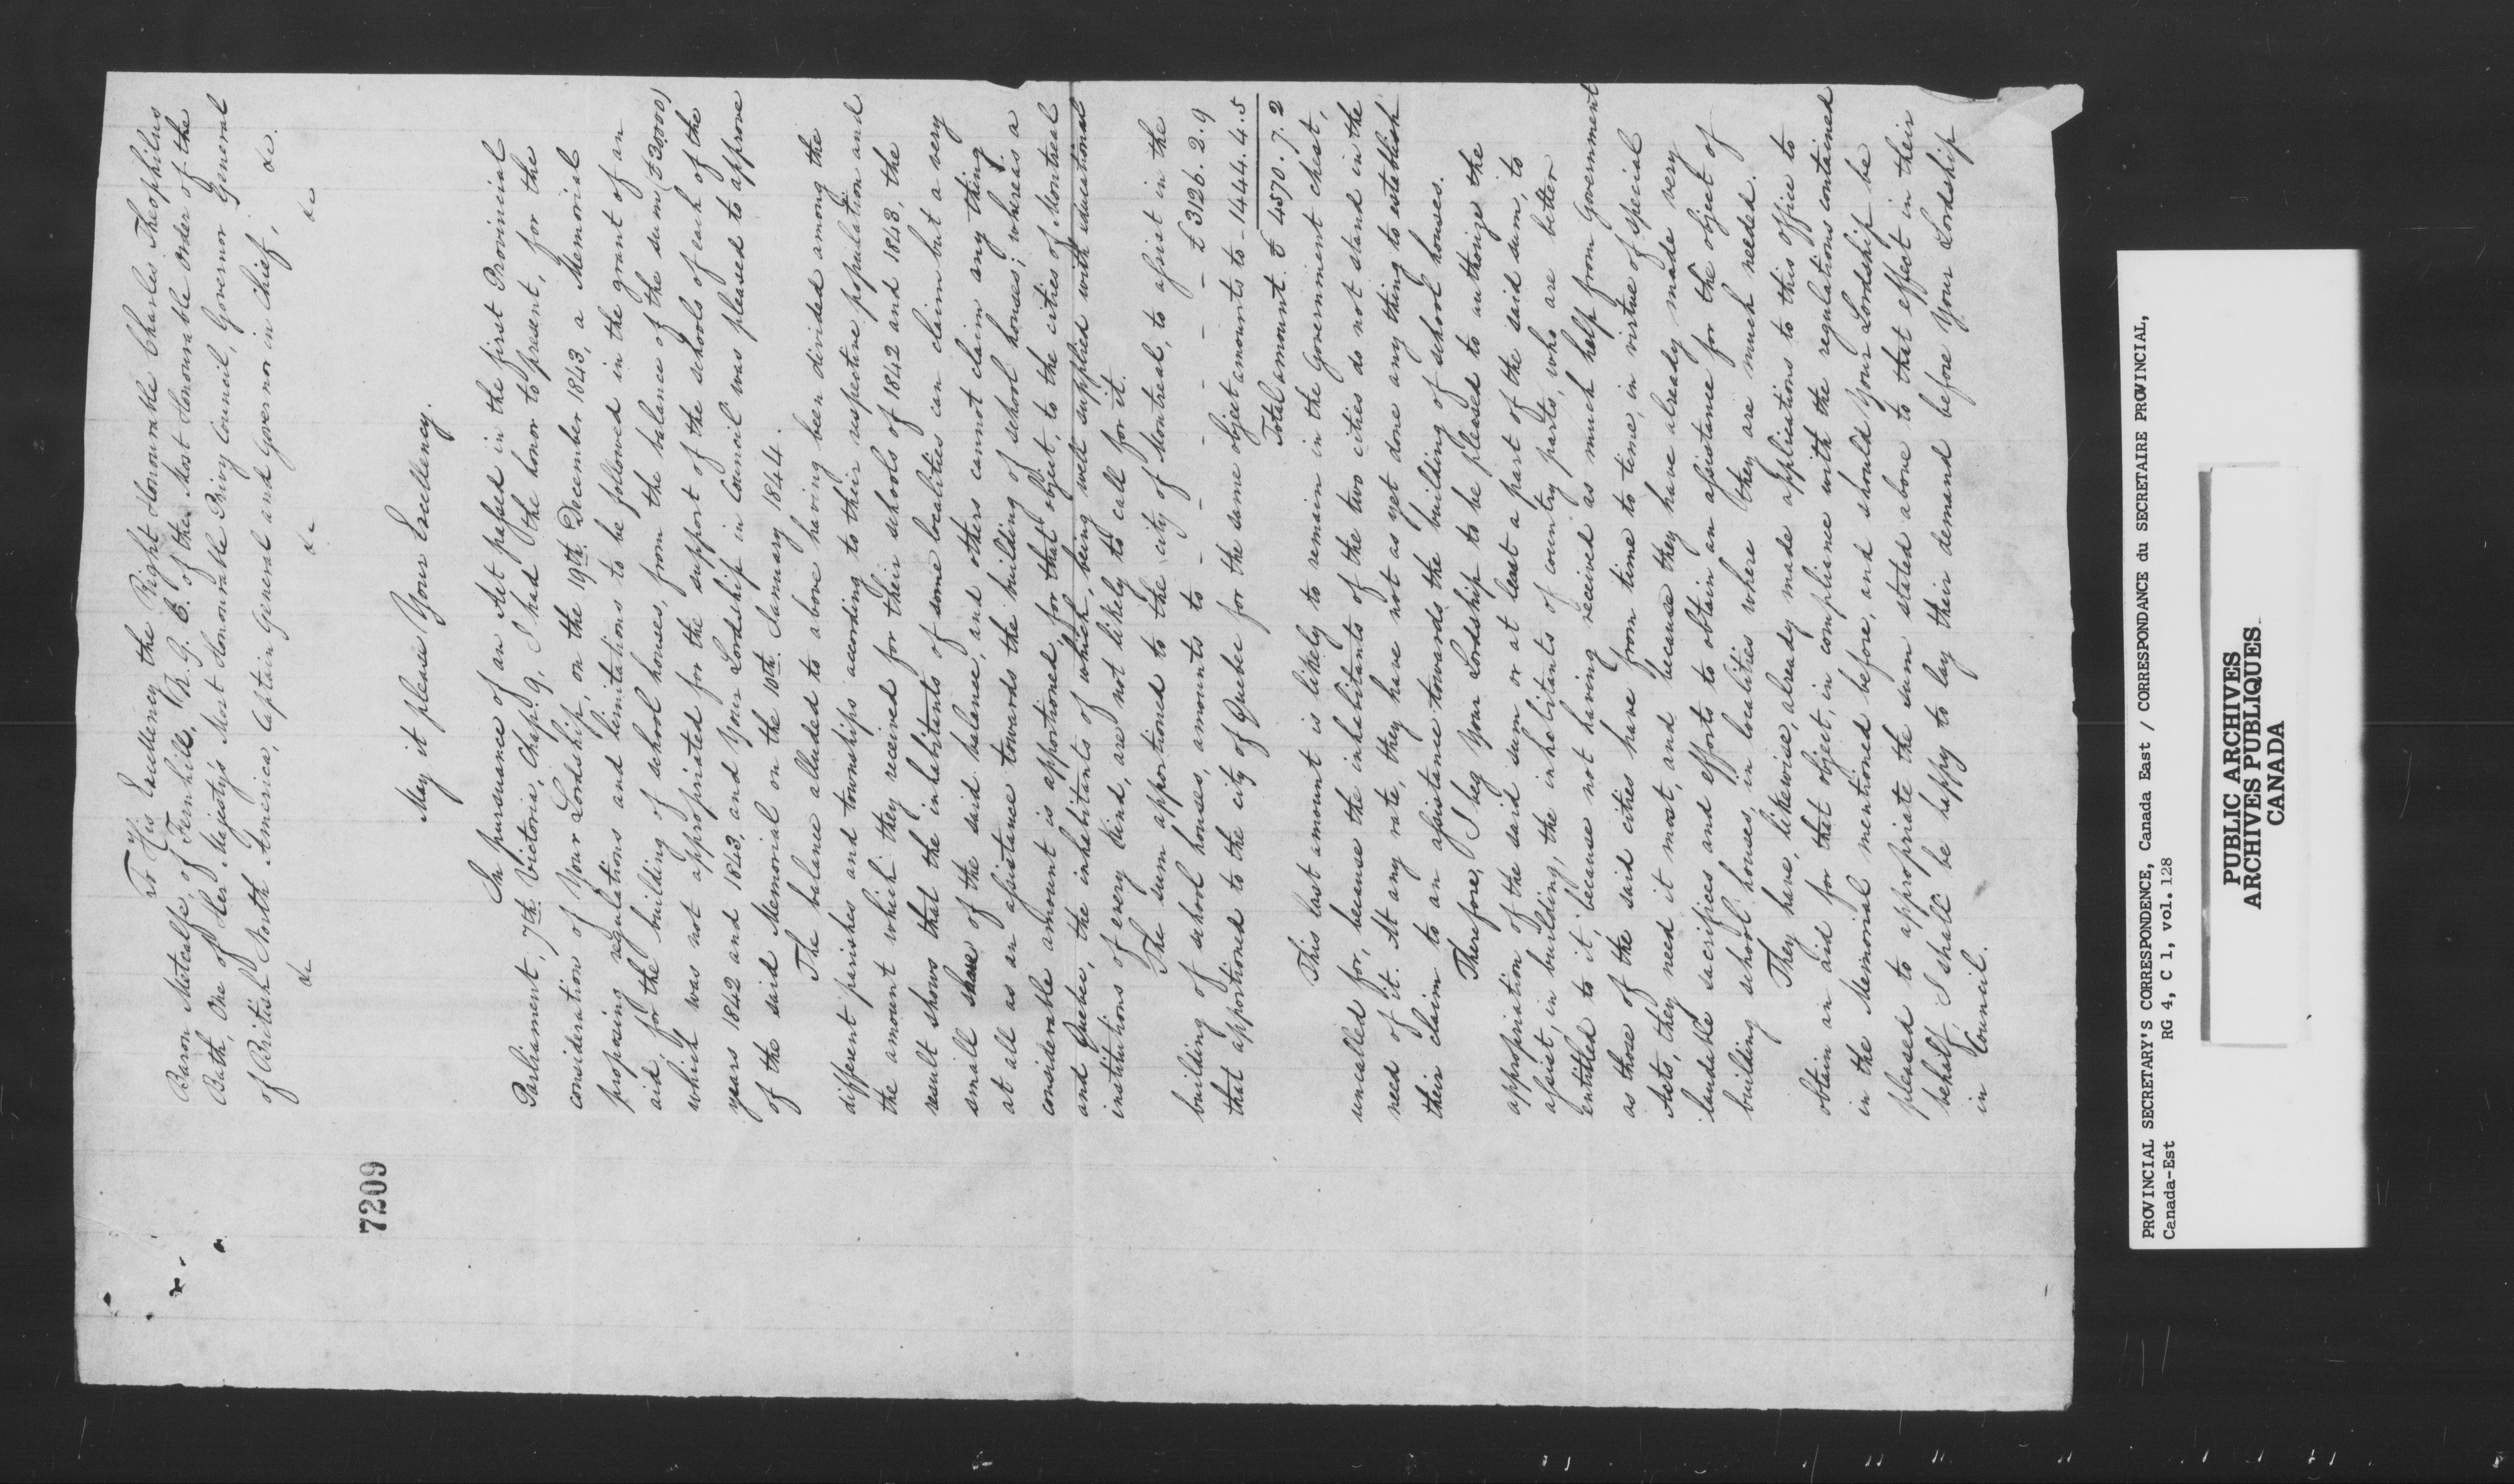 To His Excellency the Right Honourable Charles Theophilus
Baron Metcalfe, of Fernhill, K. G. C. of the Most Honourable Order of the
Bath, One of Her Majesty's Most Honourable Privy Council, Governor General
of British North America, Captain General and Governor in Chief,
&c &c &c &c.
7209
May it please Your Excellency.
In pursuance of an Act passed in the first Provincial
Parliament, 7th. Victoria, Chap: 9, I had the honor to present, for the
consideration of Your Lordship, on the 19th. December 1843, a Memorial
proposing regulations and limitations to be followed in the grant of an
aid for the building of school houses, from the balance of the sum (£30000)
which was not appropriated for the support of the schools of each of the
years 1842 and 1843, and Your Lordship in Council was pleased to approve
of the said Memorial on the 10th. January 1844.
The balance alluded to above having been divided among the
different parishes and townships according to their respective population and
the amount which they received for their schools of 1842 and 1843, the
result shows that the inhabitants of some localities can claim but a very
small share of the said balance, and others cannot claim any thing
at all as an assistance towards the building of school houses; whereas a
considerable amount is apportioned, for that object, to the cities of Montreal
and Quebec, the inhabitants of which, being well supplied with educational
institutions of every kind, are not likely to call for it.
The sum apportioned to the city of Montreal, to assist in the
building of school houses, amounts to - - - - - - £3126. 2. 9
that apportioned to the city of Quebec for the same object amounts to - 1444. 4. 5
Total amount. £ 4570. 7. 2
This last amount is likely to remain in the Government chest,
uncalled for, because the inhabitants of the two cities do not stand in the
need of it. At any rate, they have not as yet done any thing to establish
their claim to an assistance towards the building of school houses.
Therefore, I beg Your Lordship to be pleased to authorize the
appropriation of the said sum or at least a part of the said sum, to
assist, in building, the inhabitants of country parts, who are better
entitled to it, because not having received as much help from Government
as those of the said cities have from time to time, in virtue of special
Acts, they need it most, and because they have already made very
laudable sacrifices and efforts to obtain an assistance for the object of
building school houses, in localities where they are much needed.
They have, likewise, already made applications to this office to
obtain an aid for that object, in compliance with the regulations contained
in the Memorial mentioned before, and should Your Lordship be
pleased to appropriate the sum stated above to that effect in their
behalf, I shall be happy to lay their demand before Your Lordship
in Council.
PROVINCIAL SECRETARY'S CORRESPONDENCE, Canada East / CORRESPONDANCE du SECRETAIRE PROVINCIAL,
Canada-Est RG 4, C 1, vol. 128
PUBLIC ARCHIVES
ARCHIVES PUBLIQUES
CANADA